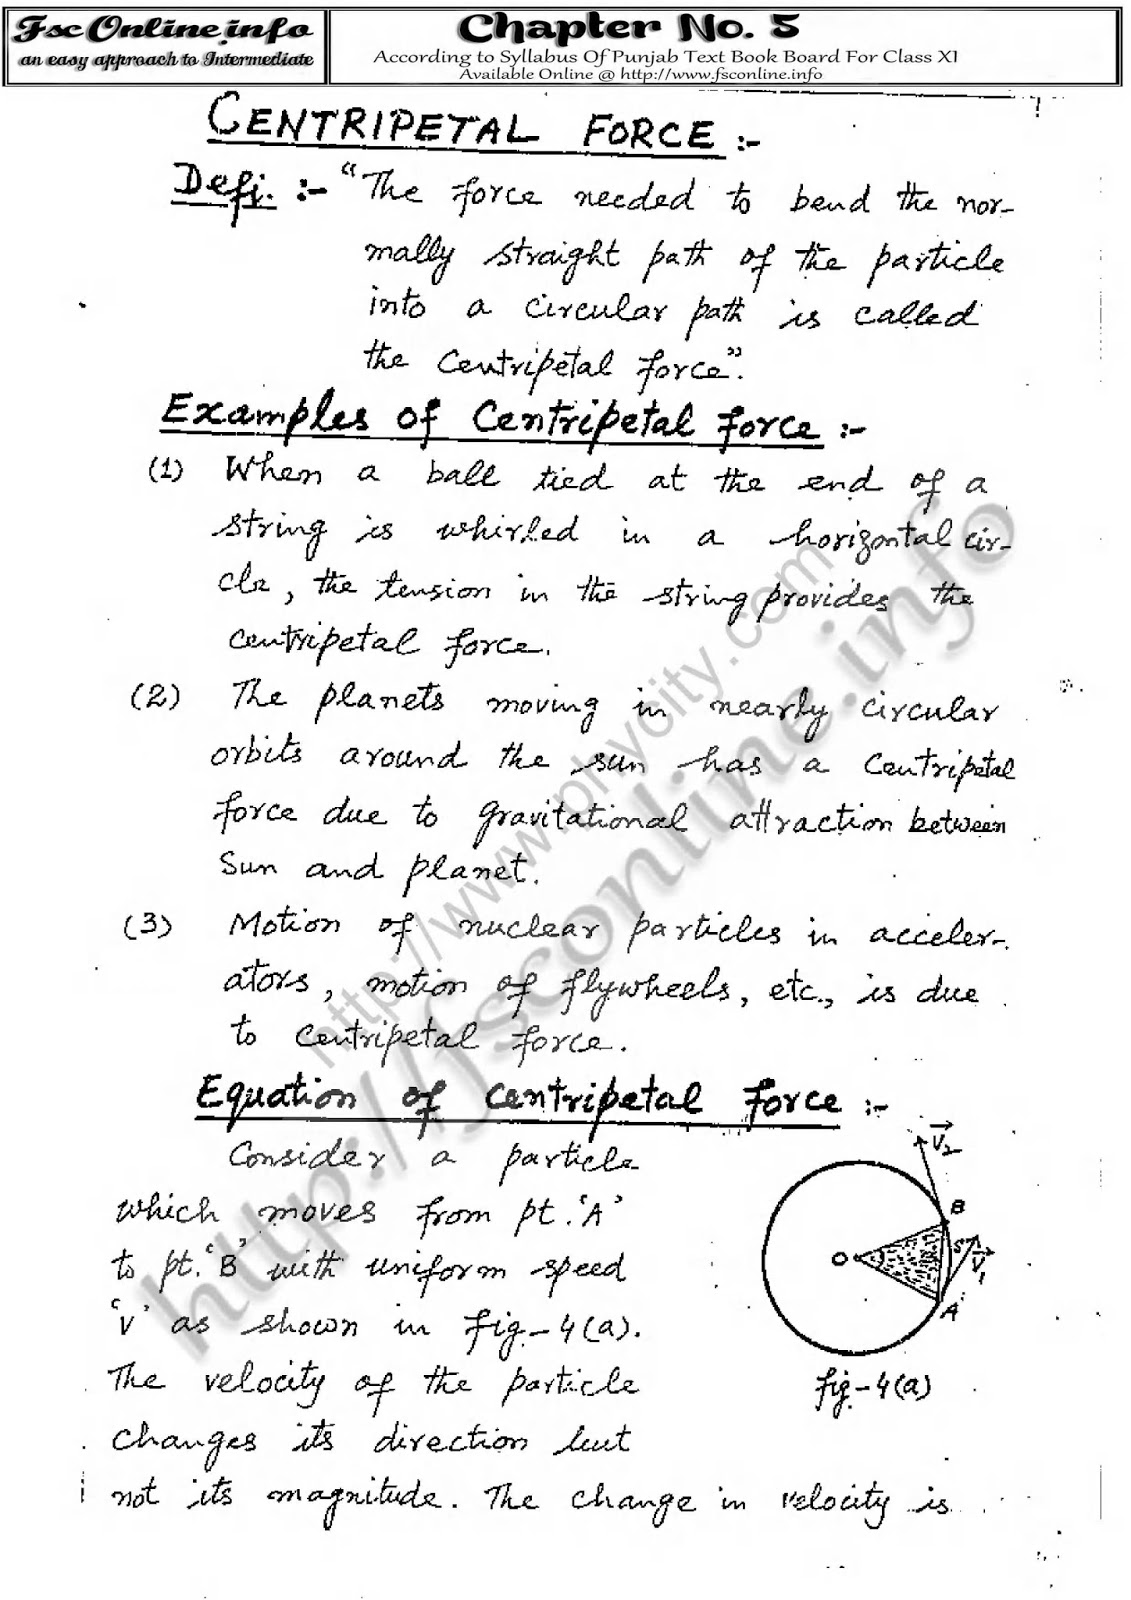 Fsc Online.info
an easy approach to Intermediate
Chapter No. 5
According to Syllabus Of Punjab Text Book Board For Class XI
Available Online @ http://www.fsconline.info
CENTRIPETAL FORCE :-
Defi. :- "The force needed to bend the nor-
mally straight path of the particle
into a circular path is called
the Centripetal force".
Examples of Centripetal force :-
(1) When a ball tied at the end of a
string is whirled in a horizontal cir-
cle, the tension in the string provides the
centripetal force.
(2) The planets moving in nearly circular
orbits around the sun has a centripetal
force due to gravitational attraction between
Sun and planet.
(3) Motion of nuclear particles in acceler-
ators, motion of flywheels, etc., is due
to centripetal force.
Equation of centripetal force :-
Consider a particle
which moves from pt. 'A'
to pt. 'B' with uniform speed
'v' as shown in fig-4(a).
The velocity of the particle
changes its direction but
not its magnitude. The change in velocity is
V₂
B
O
S
V₁
A
fig-4(a)
http://www.phycity.com
http://fsconline.info